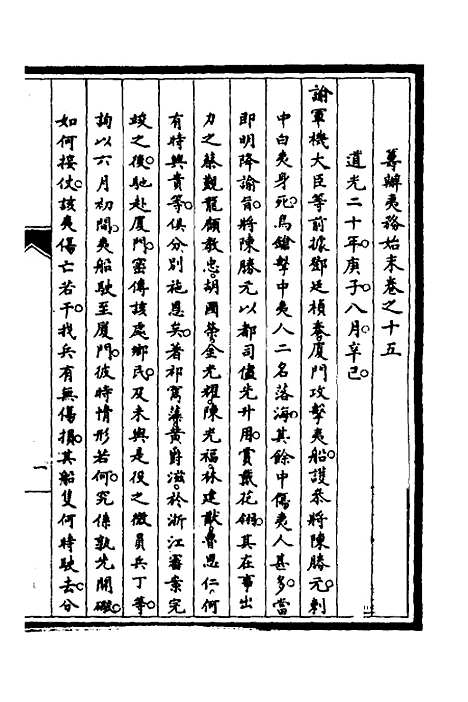 籌辦夷務始末卷之十五
道光二十年庚子八月辛巳。
諭軍機大臣等前據鄧廷楨奏。廈門攻擊夷船。護參將陳勝元。刺
中白夷身死。鳥鎗擊中夷人二名落海。其餘中傷夷人甚多。當
即明降諭旨。將陳勝元以都司儘先升用。賞戴花翎。其在事出
力之蔡觀龍。顧教忠。胡國榮。金光耀。陳光福。林建猷。魯思仁。何
有時興貴等。俱分別施恩矣。著祁寯藻。黃爵滋。於浙江審案完
竣之後。馳赴廈門。密傳該處鄉民。及未與是役之微員兵丁等。
詢以六月初間。夷船駛至廈門。彼時情形若何。究係孰先開礮。
如何接仗。該夷傷亡若干。我兵有無傷損。其船隻何時駛去。分
一